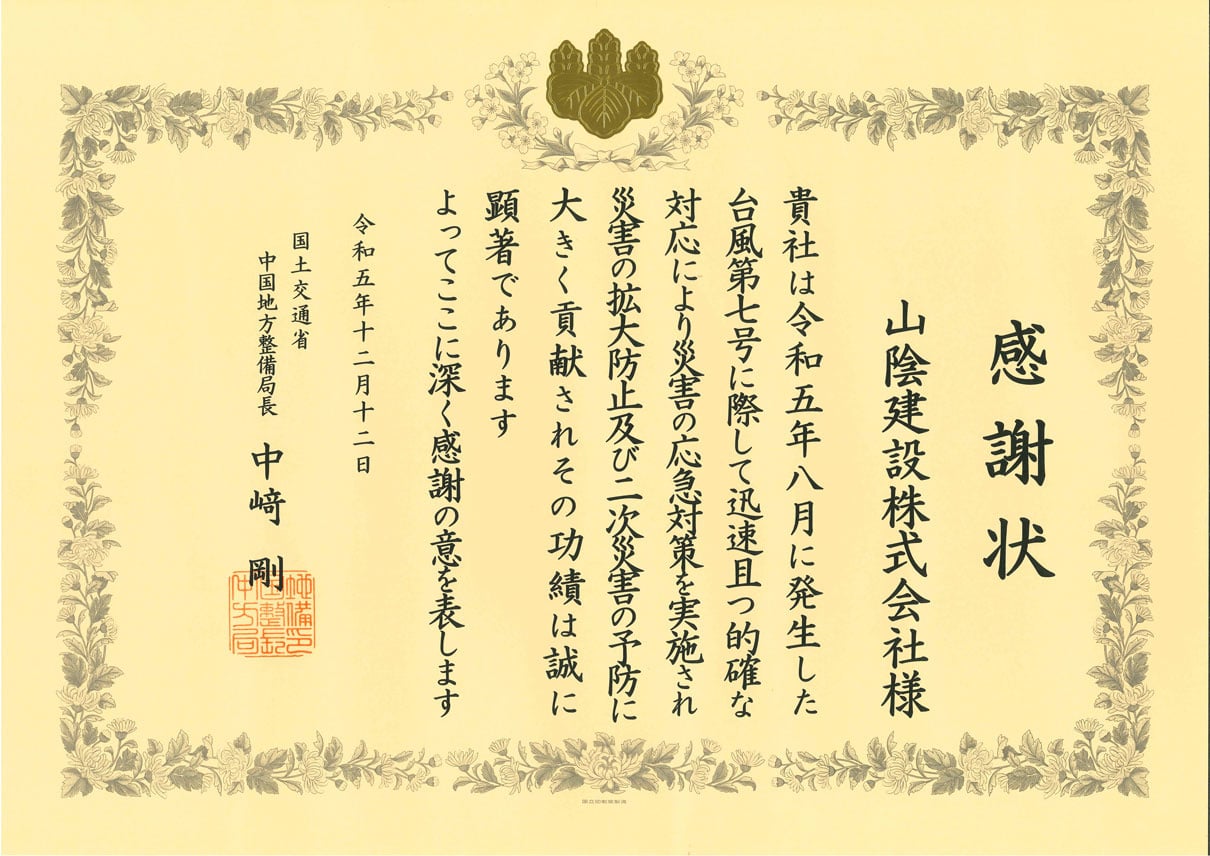 感謝状
山陰建設株式会社様
貴社は令和五年八月に発生した
台風第七号に際して迅速且つ的確な
対応により災害の応急対策を実施され
災害の拡大防止及び二次災害の予防に
大きく貢献されその功績は誠に
顕著であります
よってここに深く感謝の意を表します
令和五年十二月十二日
国土交通省
中国地方整備局長
中﨑剛
国立印刷局製造